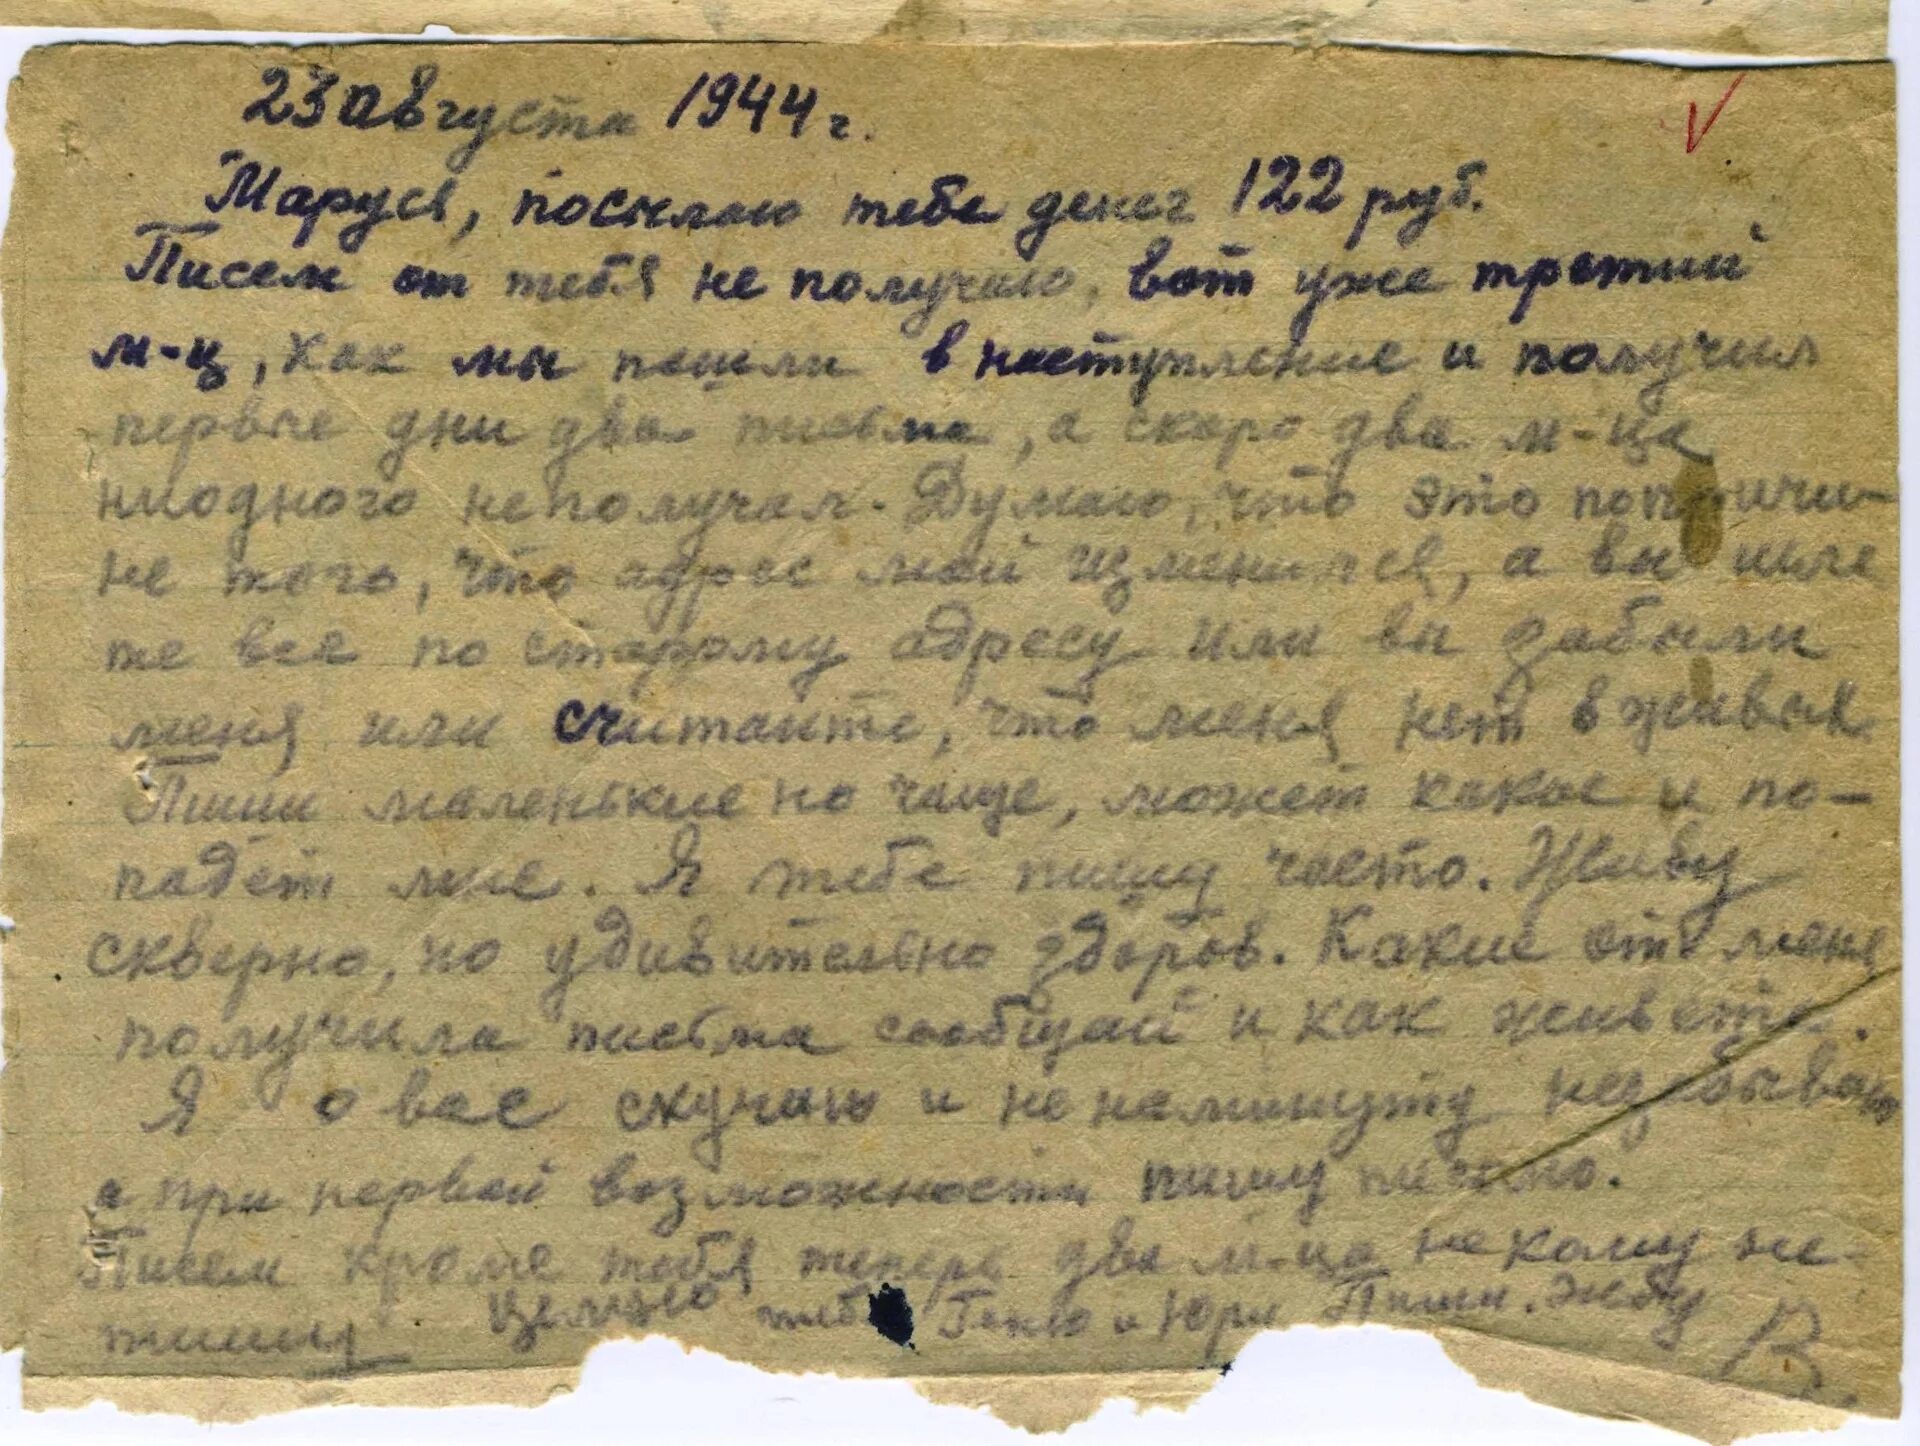 23 августа 1944 г.
Маруся, посылаю тебе денег 122 руб.
Писем от тебя не получаю, вот уже третий
м-ц, как мы пошли в наступление и получил
первые дни два письма, а скоро два м-ца
ниодного неполучал. Думаю, что это попричи-
не того, что адрес мой изменился, а вы пише
те все по старому адресу или вы забыли
меня или считаите, что меня нет в живых.
Пиши маленькие но чаще, может какое и по-
падёт мне. Я тебе пишу часто. Живу
скверно, но удивительно здоров. Какие от меня
получила письма сообщай и как живете.
Я о вас скучаю и не наминуту незабываю
а при первой возможности пишу письмо.
Писем кроме тебя теперь два м-ца некому не-
пишу Целую тебя Геню и Юри Пиши. Жду
В.